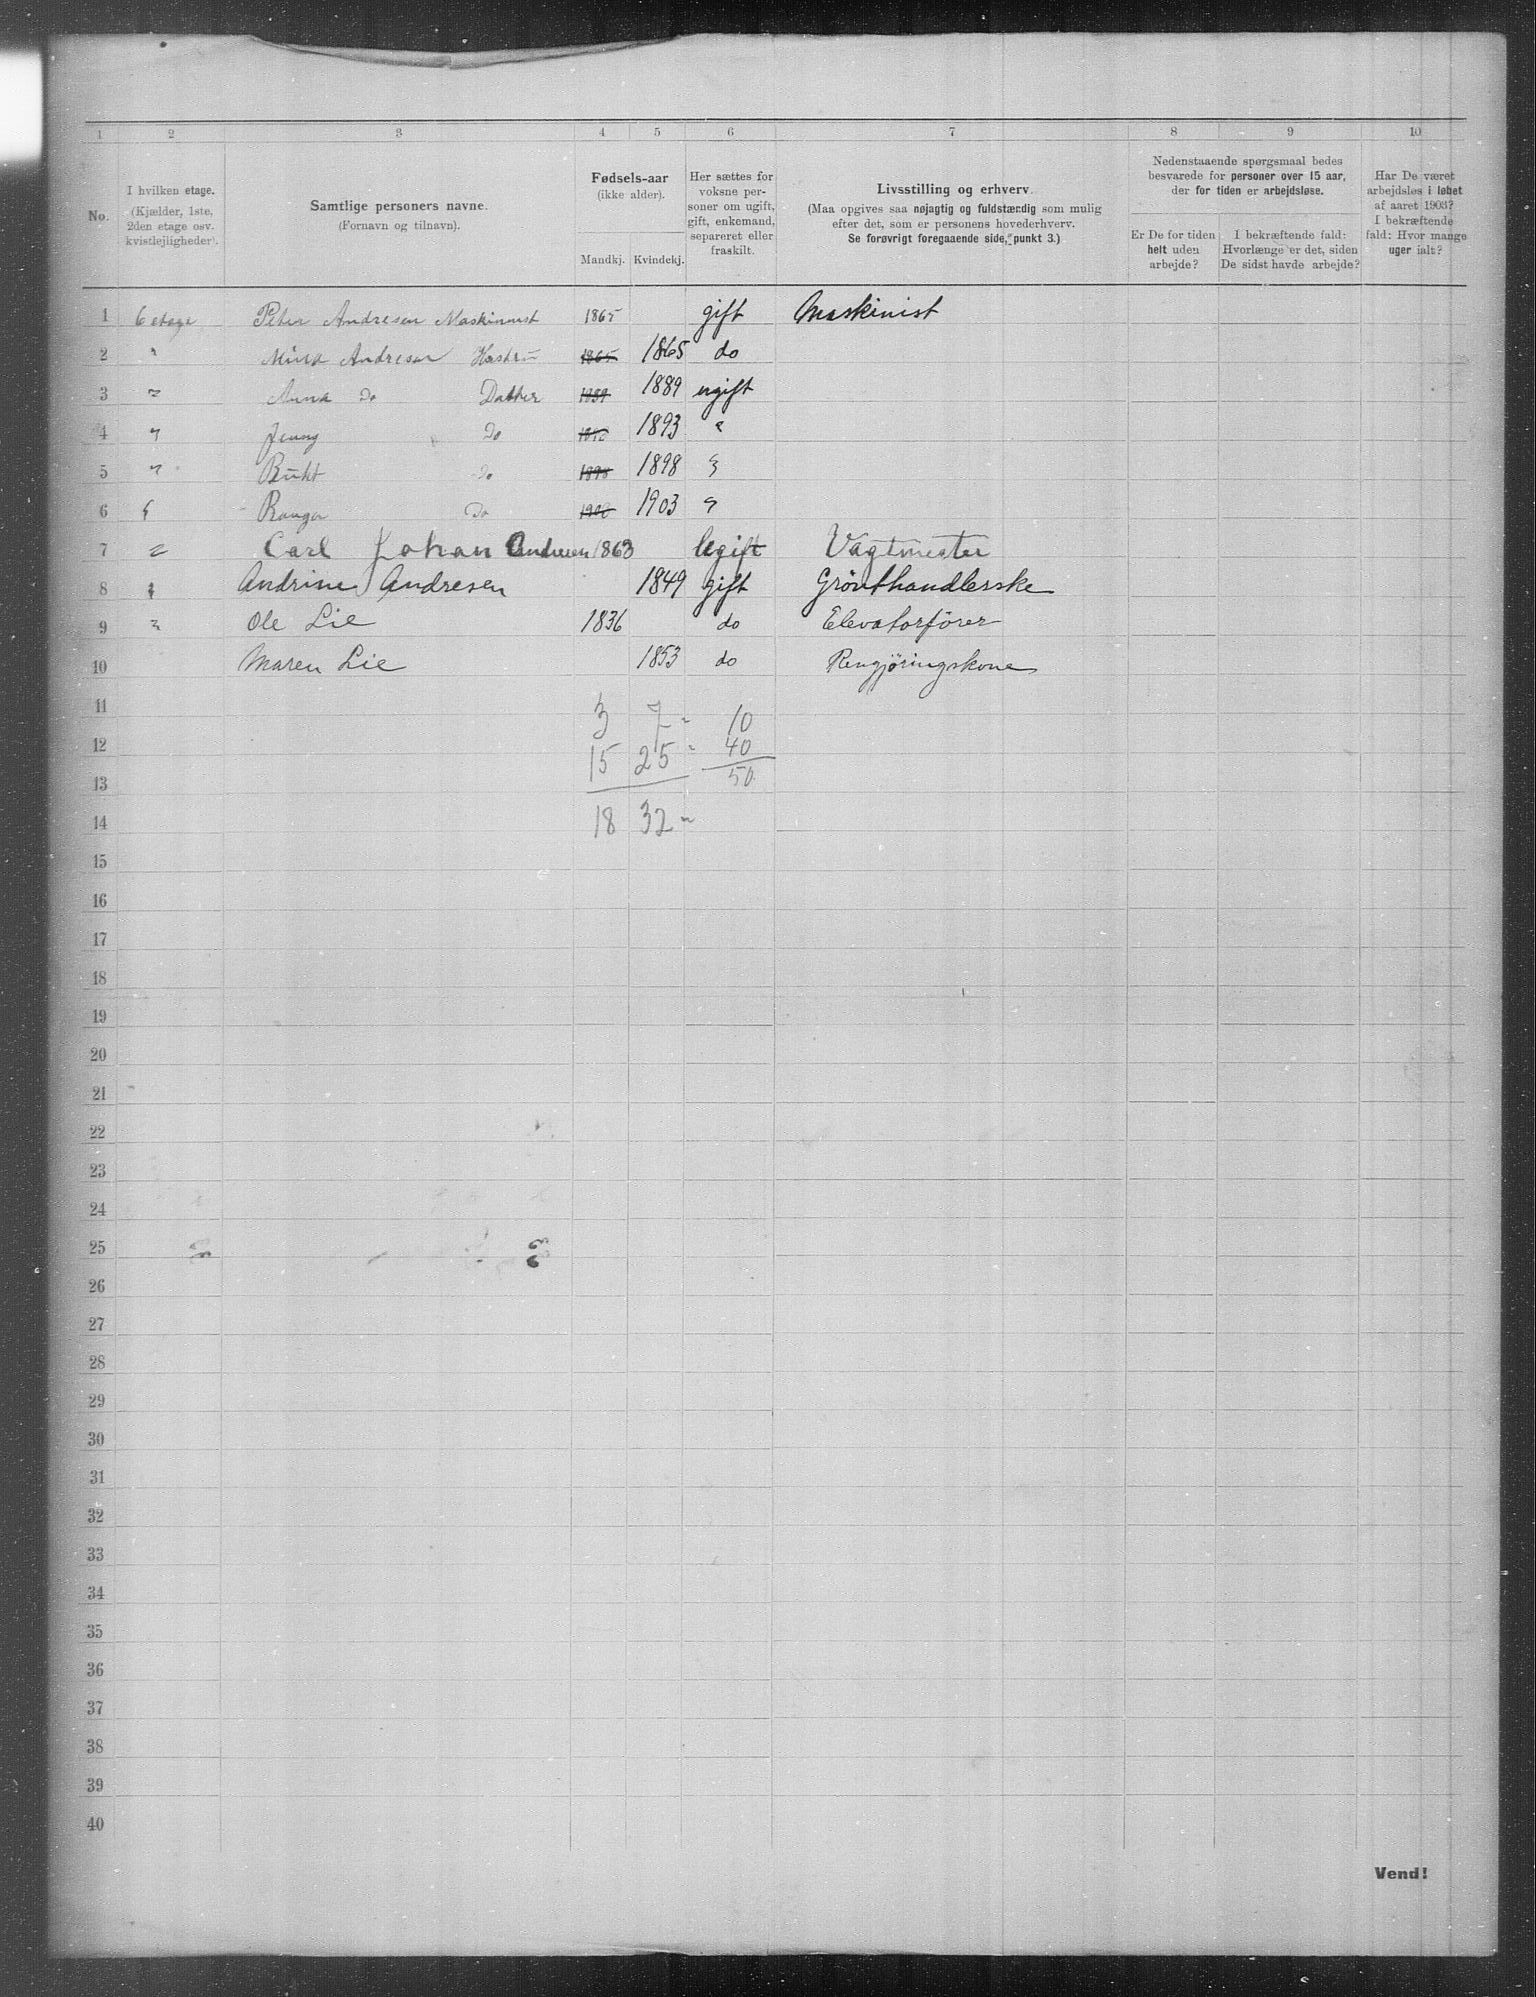 1 2 3 4 5 6 7 8 9 10
No.
I hvilken etage.
(Kjælder, 1ste,
2den etage osv.
kvistlejligheder).
Samtlige personers navne.
(Fornavn og tilnavn).
Fødsels-aar
(ikke alder).
Mandkj. Kvindekj.
Her sættes for
voksne per-
soner om ugift,
gift, enkemand,
separeret eller
fraskilt.
Livsstilling og erhverv.
(Maa opgives saa nøjagtig og fuldstændig som mulig
efter det, som er personens hovederhverv.
Se forøvrigt foregaaende side, punkt 3.)
Nedenstaaende spørgsmaal bedes
besvarede for personer over 15 aar,
der for tiden er arbejdsløse.
Er De for tiden
helt uden
arbejde?
I bekræftende fald:
Hvorlænge er det, siden
De sidst havde arbejde?
Har De været
arbejdsløs i løbet
af aaret 1903?
I bekræftende
fald: Hvor mange
uger ialt?
1 6 etage Peter Andresen Maskinnist 1865 gift Maskinist
2 " Andresen 1865 1865 do
3 " Anna Do Datter 1889 1889 ugift
4 " Jenny Do 1893 "
5 " Do 1898 1898 "
6 " Do 1903 "
7 " Carl Johan Andresen 1863 Vagtmester
8 " Andrine Andresen 1849 gift Grönthandlerske
9 " Ole Lie 1836 do Elevatorfører
10 Maren Lie 1853 do Rengjøringskone
11 3 7 - 10
12 15 25 - 40
13 50
14 18 32 -
15
16
17
18
19
20
21
22
23
24
25
26
27
28
29
30
31
32
33
34
35
36
37
38
39
40
Vend!